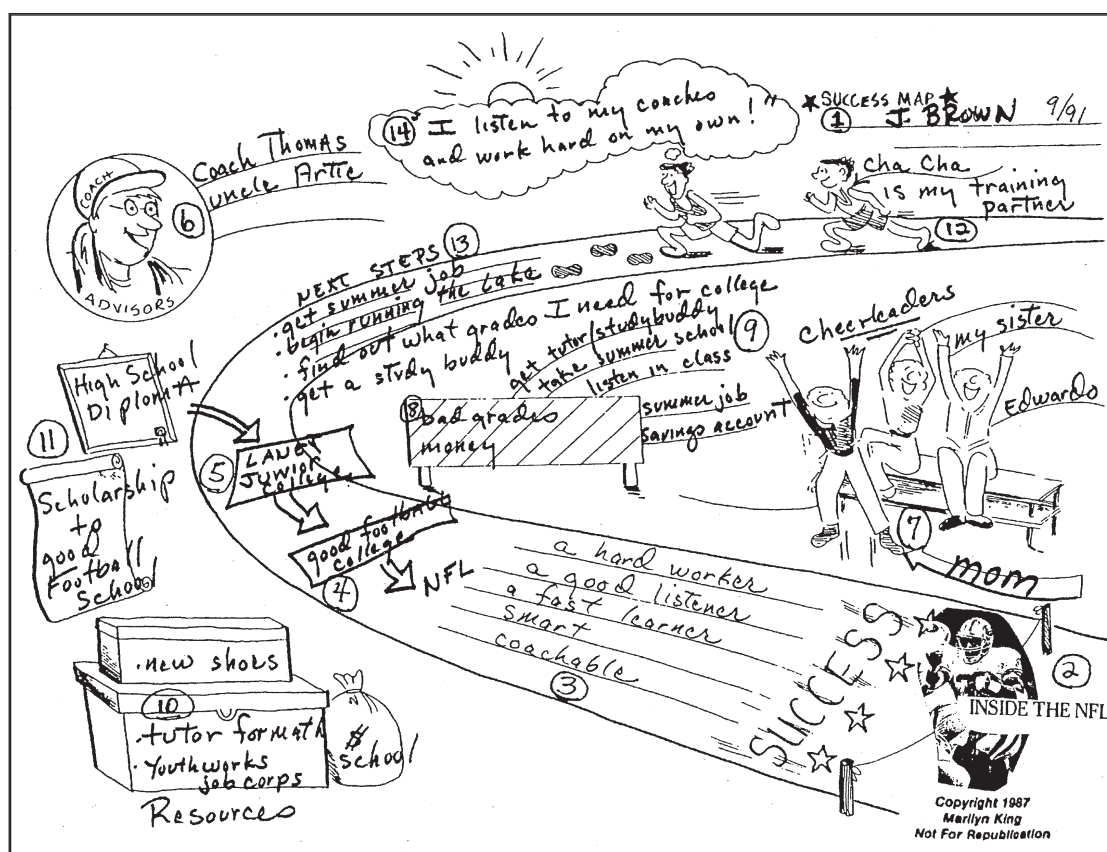 ★ SUCCESS MAP ★
1 J. BROWN 9/91
14 "I listen to my coaches
and work hard on my own!"
Coach Thomas
Uncle Artie
COACH
6
ADVISORS
Cha Cha
is my training
partner
12
NEXT STEPS 13
• get summer job
• begin running the lake
• find out what grades I need for college
• get a study buddy
get tutor/studybuddy
take summer school 9
listen in class
summer job
savings account
8 bad grades
money
cheerleaders
my sister
Edwardo
7
mom
High School
Diploma
11
Scholarship
to
good
Football
School
5
LANEY
JUNIOR
College
good football
college
4
NFL
a hard worker
a good listener
a fast learner
smart
coachable
3
SUCCESS
2
INSIDE THE NFL
• new shoes
10
• tutor for math
• Youthworks
job corps
$
school
Resources
Copyright 1987
Marilyn King
Not For Republication